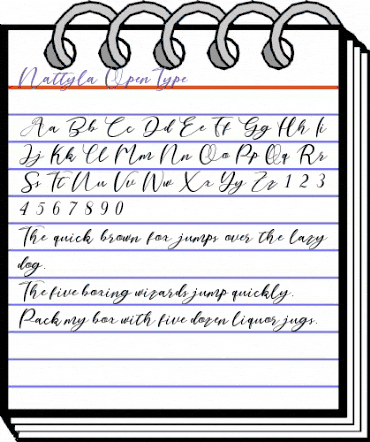 Nattyla Open Type
Aa Bb Cc Dd Ee Ff Gg Hh Ii
Jj Kk Ll Mm Nn Oo Pp Qq Rr
Ss Tt Uu Vv Ww Xx Yy Zz 1 2 3
4 5 6 7 8 9 0
The quick brown fox jumps over the lazy
dog.
The five boxing wizards jump quickly.
Pack my box with five dozen liquor jugs.